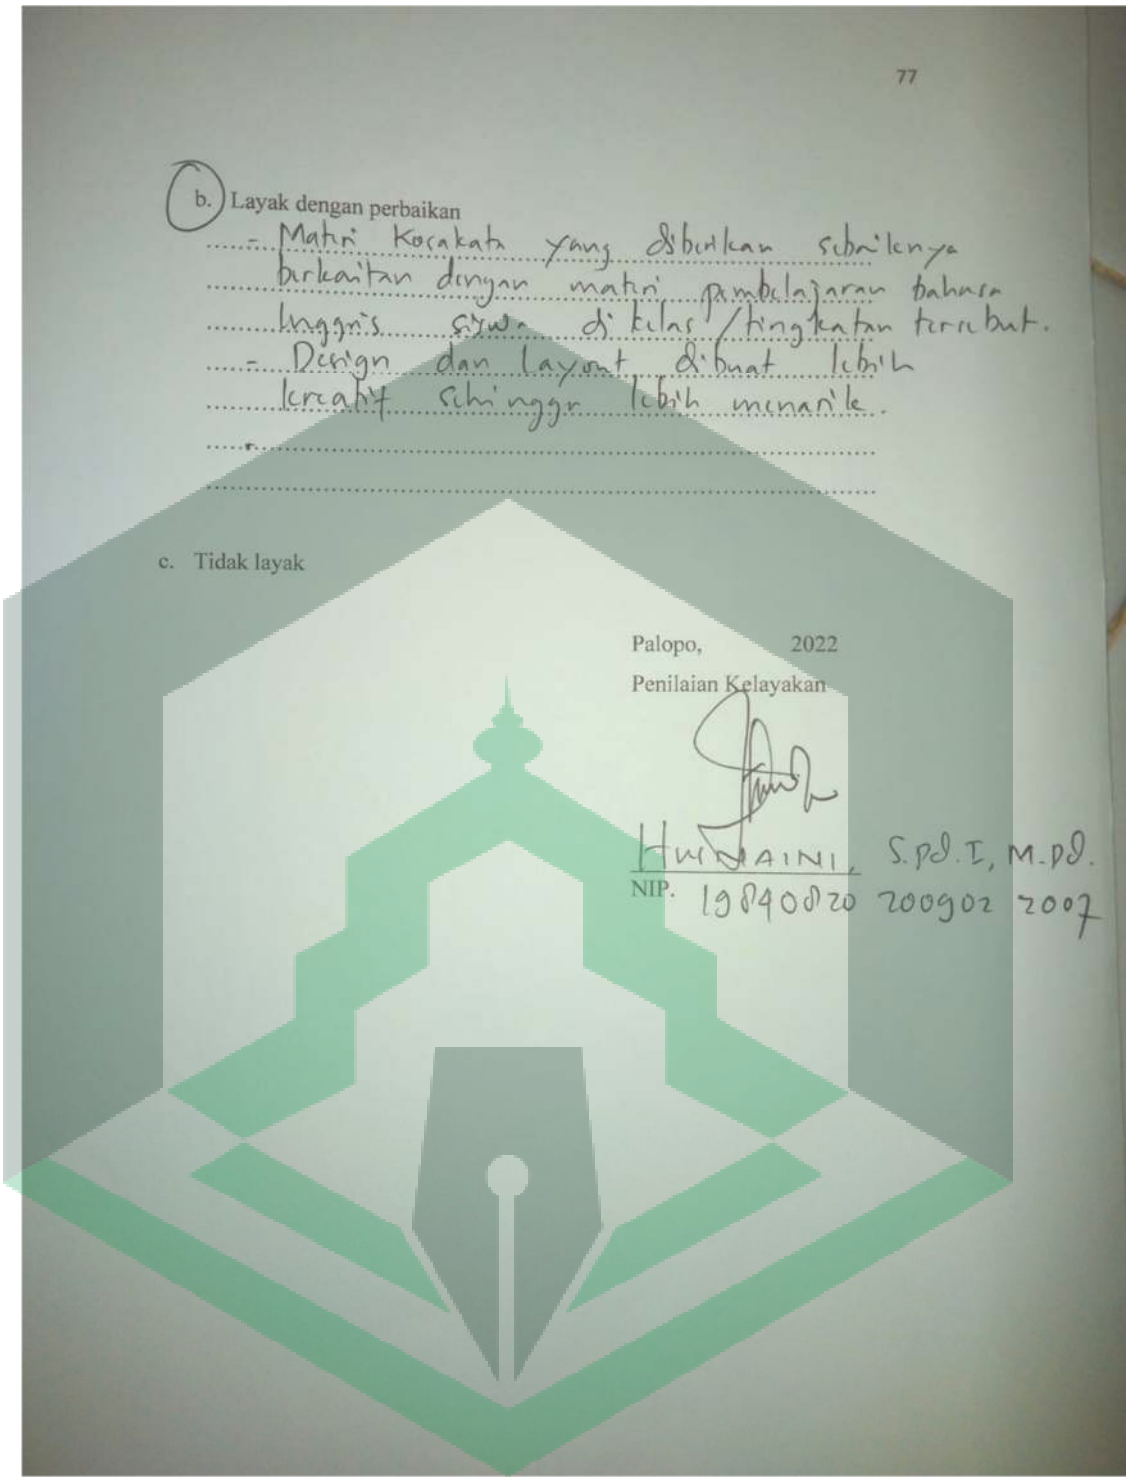 77
b. Layak dengan perbaikan
- Materi Kosakata yang diberikan sebaiknya
berkaitan dengan materi pembelajaran bahasa
Inggris siswa di kelas/tingkatan tersebut.
- Design dan layout dibuat lebih
kreatif sehingga lebih menarik.
c. Tidak layak
Palopo, 2022
Penilaian Kelayakan
HUSNAINI, S.Pd.I, M.Pd.
NIP. 19840820 200902 2007